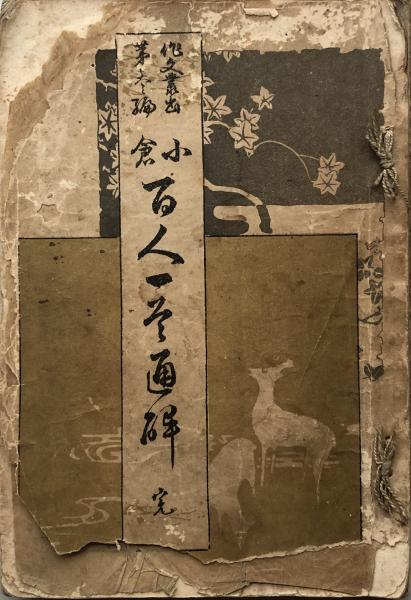 作文叢書
第編
小倉
百人一首通解 完